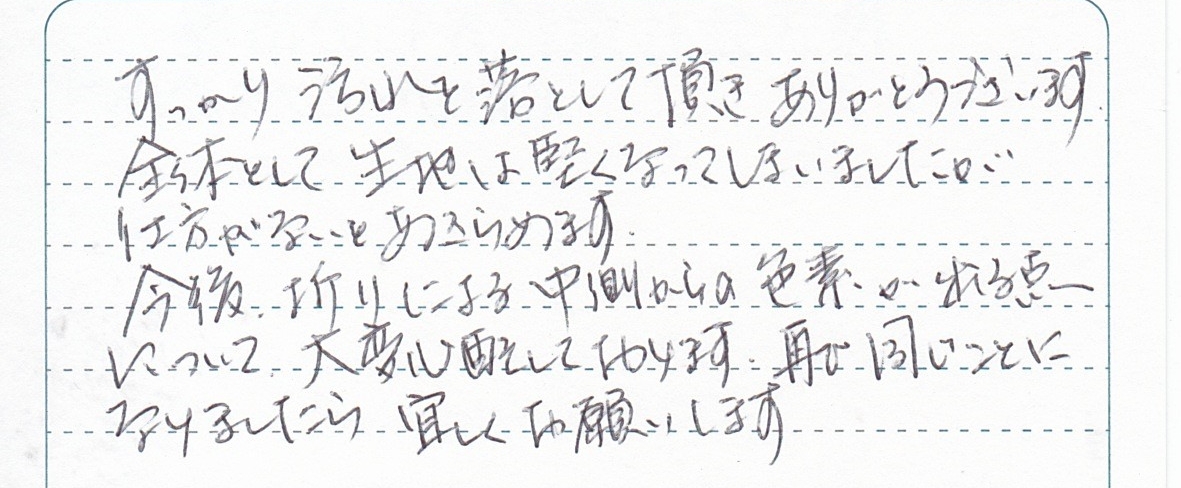 すっかり汚れを落として頂きありがとうございます.
全体として生地は堅くなってしまいましたが
仕方がないとあきらめます.
今後、折りによる中側からの色素が出る点
について、大変心配しております. 再び同じことに
なりましたら宜しくお願いします